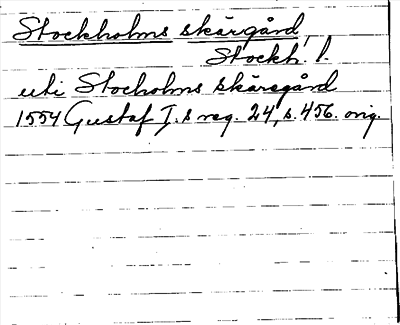 Stockholms skärgård,
Stockh. l.
uti Stocholms skäregård
1554 Gustaf I.s reg. 24, s. 456. orig.